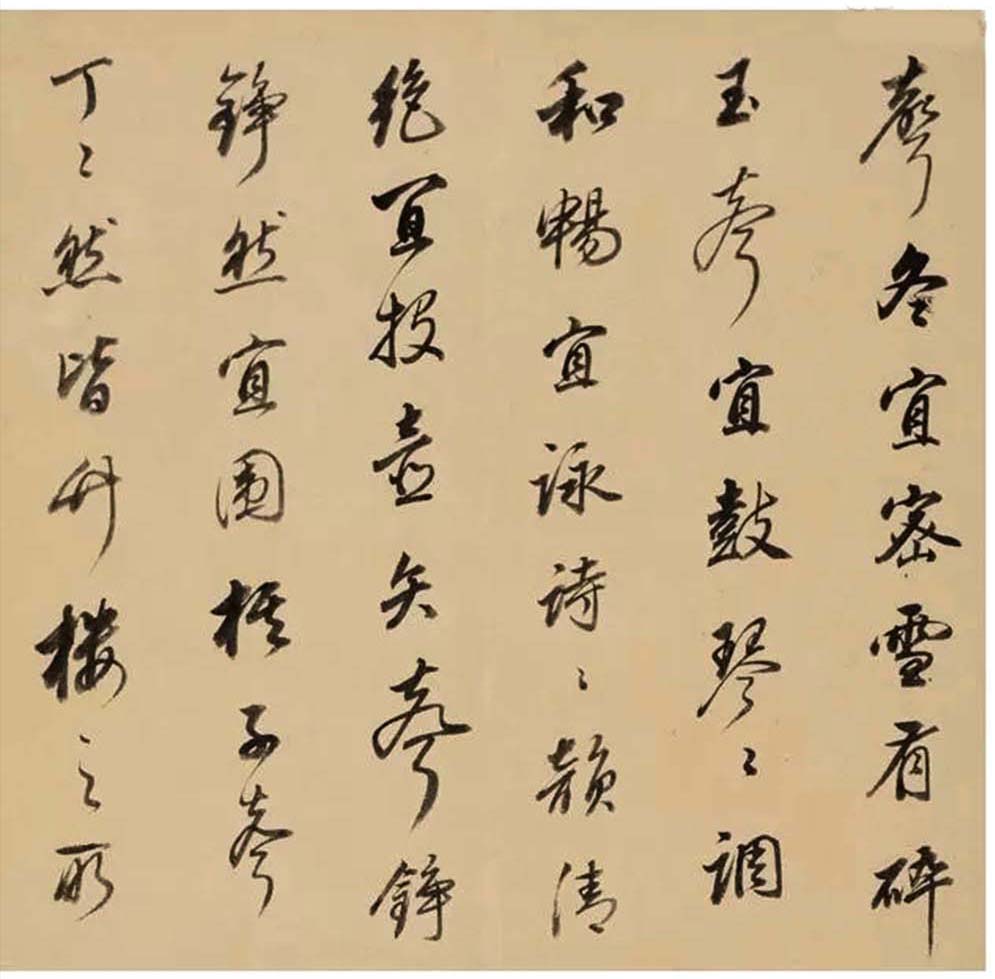 聲冬宜密雪有碎
玉聲宜鼓琴〻調
和暢宜詠詩〻韻清
絕宜投壺矢聲錚
錚然宜圍棋子聲
丁〻然皆竹樓之所